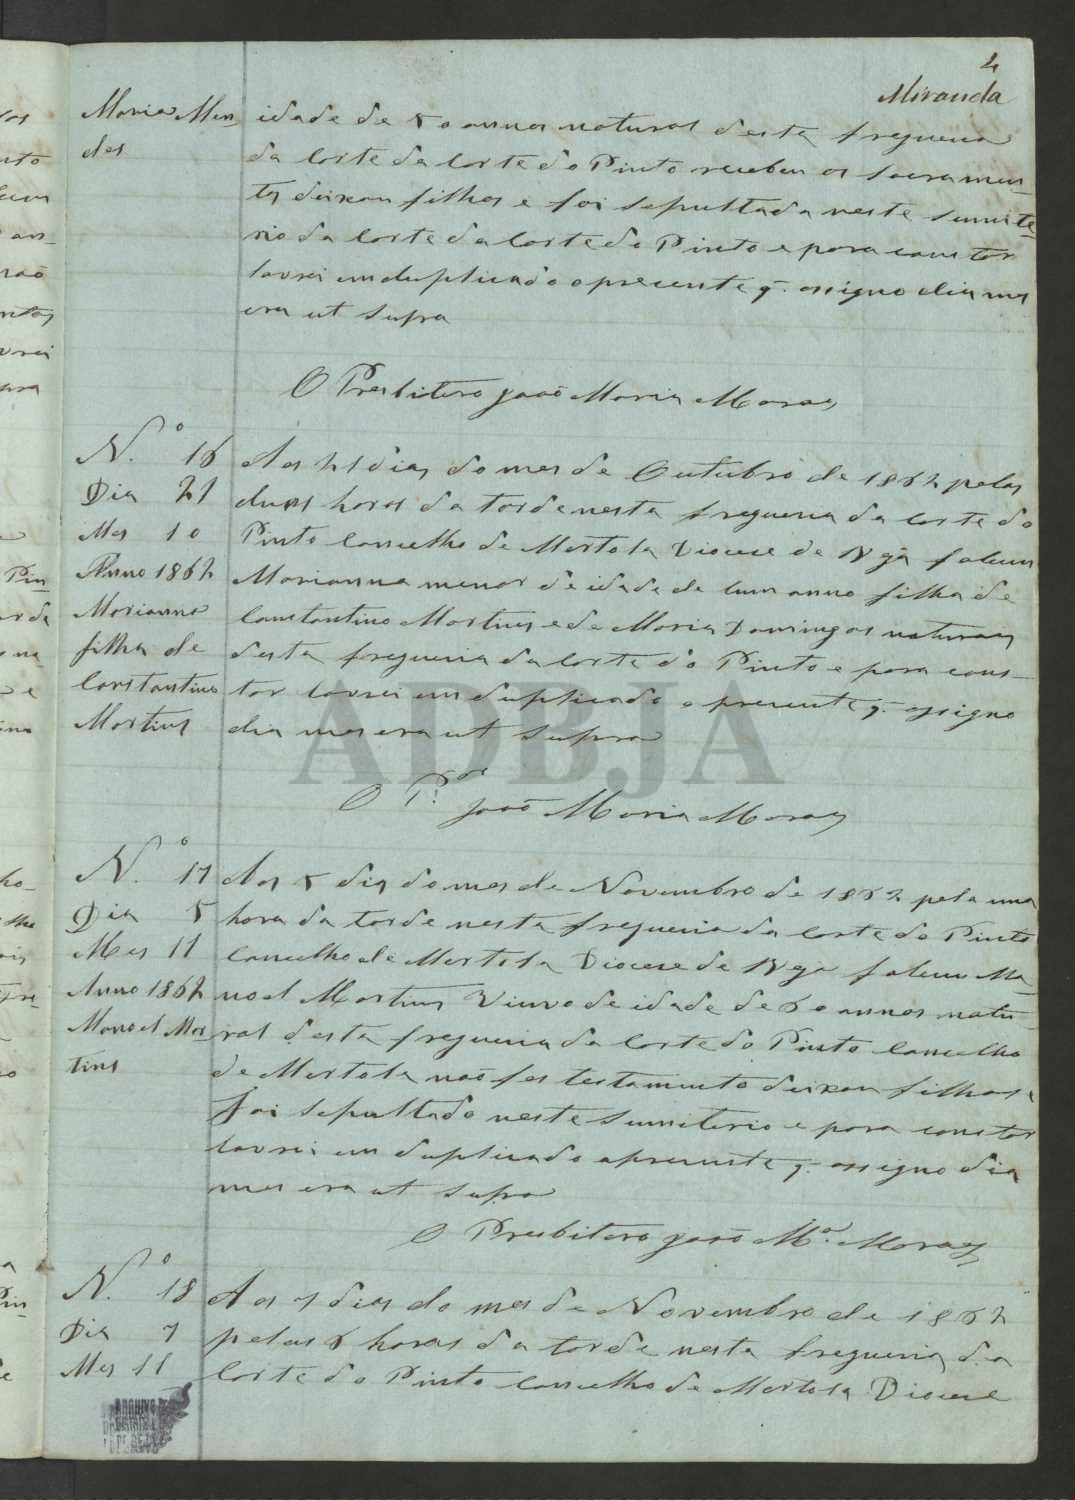 4
Miranda
Maria Men
des
idade de 80 annos natural desta freguezia
da Corte da Corte do Pinto recebeu os sacramen-
tos deixou filhos e foi sepultada neste simite-
rio da Corte da Corte do Pinto e para constar
lavrei em duplicado o prezente q. assigno dia mes
era ut supra
O Presbitero João Maria Moraes
N.º 16
Dia 21
Mes 10
Anno 1862
Marianna
filha de
Constantino
Martins
Aos 21 dias do mes de Outubro de 1862 pelas
duas horas da tarde nesta freguezia da Corte do
Pinto Concelho de Mertola Diocese de Bja faleceu
Marianna menor de idade de hum anno filha de
Constantino Martins e de Maria Domingos naturaes
desta freguezia da Corte do Pinto e para cons-
tar lavrei em duplicado o prezente q. assigno
dia mes era ut supra
O P.or João Maria Moraes
N.º 17
Dia 5
Mes 11
Anno 1862
Manoel Mar
tins
Aos 5 dias do mes de Novembro de 1862 pela uma
hora da tarde nesta freguezia da Corte do Pinto
Concelho de Mertola Diocese de Bja faleceu Ma-
noel Martins Viuvo de idade de 60 annos natu-
ral desta freguezia da Corte do Pinto Concelho
de Mertola não fes testamento deixou filhos e
foi sepultado neste simiterio e para constar
lavrei em duplicado o prezente q. assigno dia
mes era ut supra
O Presbitero João M.a Moraes
N.º 18
Dia 7
Mes 11
Aos 7 dias do mes de Novembro de 1862
pelas 6 horas da tarde nesta freguezia da
Corte do Pinto Concelho de Mertola Diocese
ADBJA
ARCHIVO